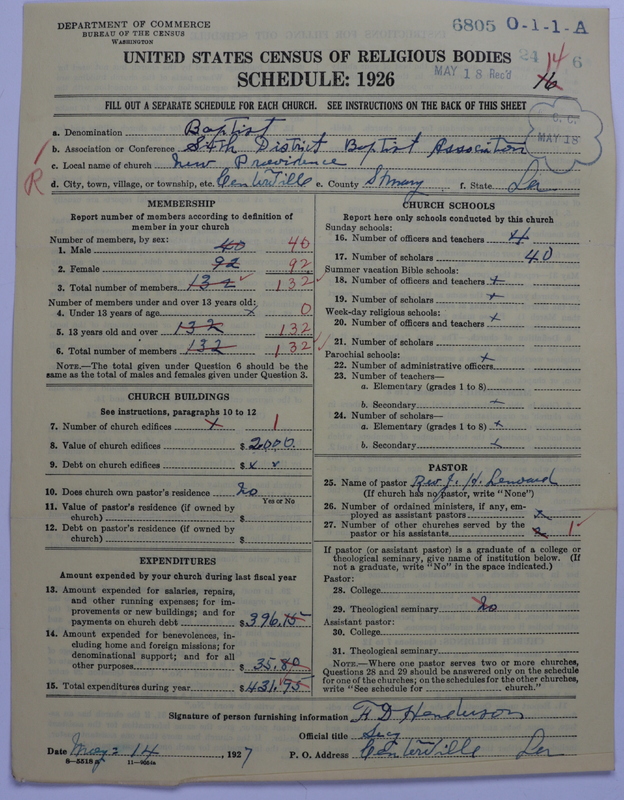 DEPARTMENT OF COMMERCE
BUREAU OF THE CENSUS
WASHINGTON
6805 O-1-1-A
UNITED STATES CENSUS OF RELIGIOUS BODIES
SCHEDULE: 1926
MAY 18 Rec'd
24 14 6
16
FILL OUT A SEPARATE SCHEDULE FOR EACH CHURCH. SEE INSTRUCTIONS ON THE BACK OF THIS SHEET
C. C.
MAY 18
R
a. Denomination Baptist
b. Association or Conference District Baptist Association
c. Local name of church New Providence
d. City, town, village, or township, etc. Centerville e. County St mary f. State La
MEMBERSHIP
Report number of members according to definition of member in your church
Number of members, by sex:
1. Male 40 40
2. Female 92 92
3. Total number of members 132 132
Number of members under and over 13 years old:
4. Under 13 years of age x 0
5. 13 years old and over 132 132
6. Total number of members 132 132
NOTE.—The total given under Question 6 should be the same as the total of males and females given under Question 3.
CHURCH BUILDINGS
See instructions, paragraphs 10 to 12
7. Number of church edifices x 1
8. Value of church edifices $ 2000.
9. Debt on church edifices $ x x
10. Does church own pastor's residence no
Yes or No
11. Value of pastor's residence (if owned by church) $
12. Debt on pastor's residence (if owned by church) $
EXPENDITURES
Amount expended by your church during last fiscal year
13. Amount expended for salaries, repairs, and other running expenses; for improvements or new buildings; and for payments on church debt $ 396.15
14. Amount expended for benevolences, including home and foreign missions; for denominational support; and for all other purposes $ 35.80
15. Total expenditures during year $ 431.95
CHURCH SCHOOLS
Report here only schools conducted by this church
Sunday schools:
16. Number of officers and teachers 4
17. Number of scholars 40
Summer vacation Bible schools:
18. Number of officers and teachers x
19. Number of scholars x
Week-day religious schools:
20. Number of officers and teachers x
21. Number of scholars
Parochial schools:
22. Number of administrative officers x
23. Number of teachers—
a. Elementary (grades 1 to 8)
b. Secondary x
24. Number of scholars—
a. Elementary (grades 1 to 8) x
b. Secondary x
PASTOR
25. Name of pastor Rev J. H. Lenward
(If church has no pastor, write "None")
26. Number of ordained ministers, if any, employed as assistant pastors x
27. Number of other churches served by the pastor or his assistants 1
If pastor (or assistant pastor) is a graduate of a college or theological seminary, give name of institution below. (If not a graduate, write "No" in the space indicated.)
Pastor:
28. College
29. Theological seminary no
Assistant pastor:
30. College
31. Theological seminary
NOTE.—Where one pastor serves two or more churches, Questions 28 and 29 should be answered only on the schedule for one of the churches; on the schedules for the other churches, write "See schedule for church."
Signature of person furnishing information F D Henderson
Official title Secy
Date May 14, 1927 P. O. Address Centerville La
8—5518 11—9064a